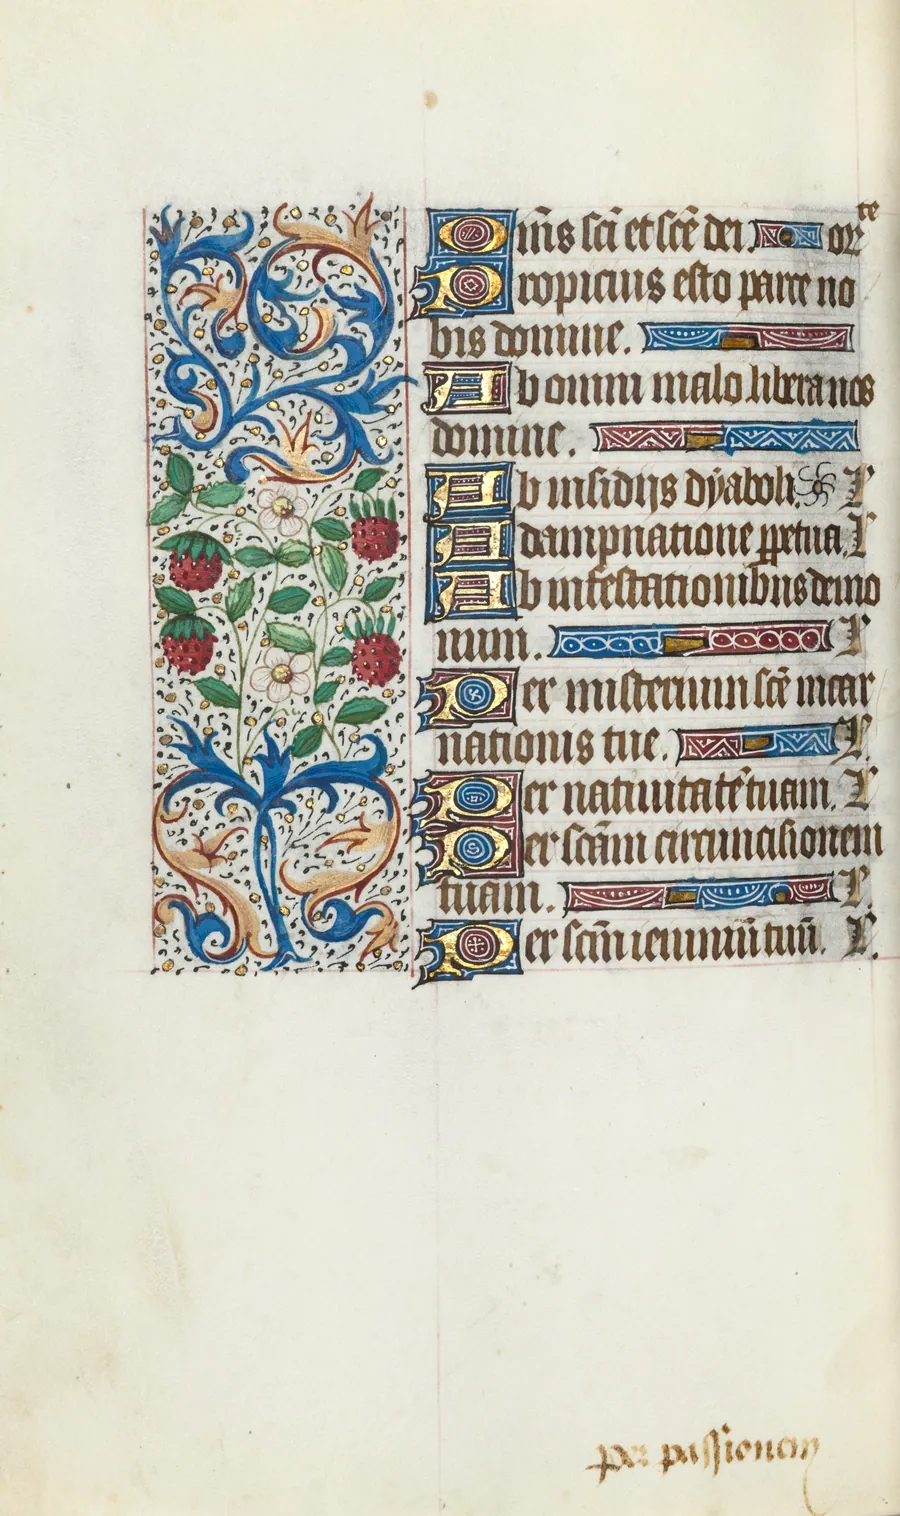 Om̄s sc̄i et sc̄e dei. or^te
Propicius esto parce no
bis domine.
Ab omni malo libera nos
domine.
Ab insidijs dÿaboli. L'
A dampnatione ꝑpetua. L'
Ab infestationibus demo
num. L'
Per misterium sc̄e incar
nationis tue. L'
Per natiuitatē tuam. L'
Per sc̄am circuncisionem
tuam. L'
Per sc̄m ieiuniū tuū. L'
per passionem